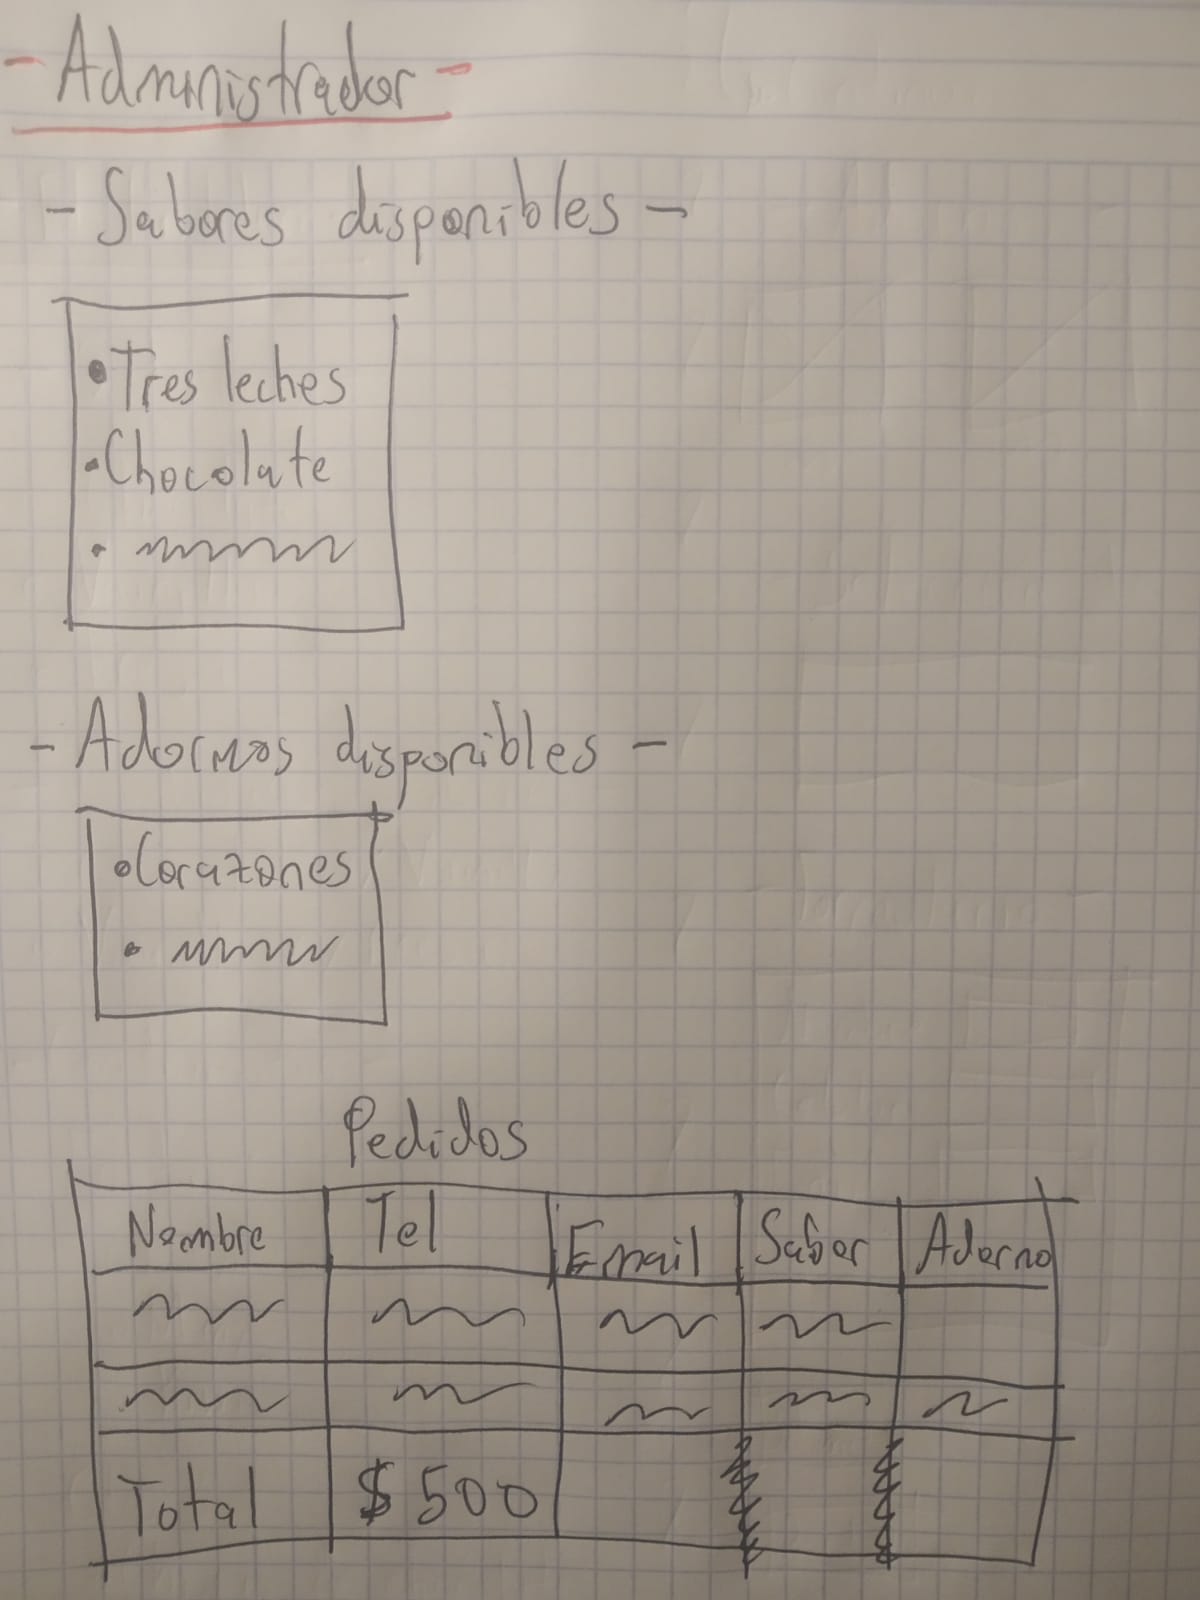 - Administrador -
- Sabores disponibles -
• Tres leches
• Chocolate
•
- Adornos disponibles -
• Corazones
•
Pedidos
Nombre Tel Email Sabor Adorno
Total $ 500